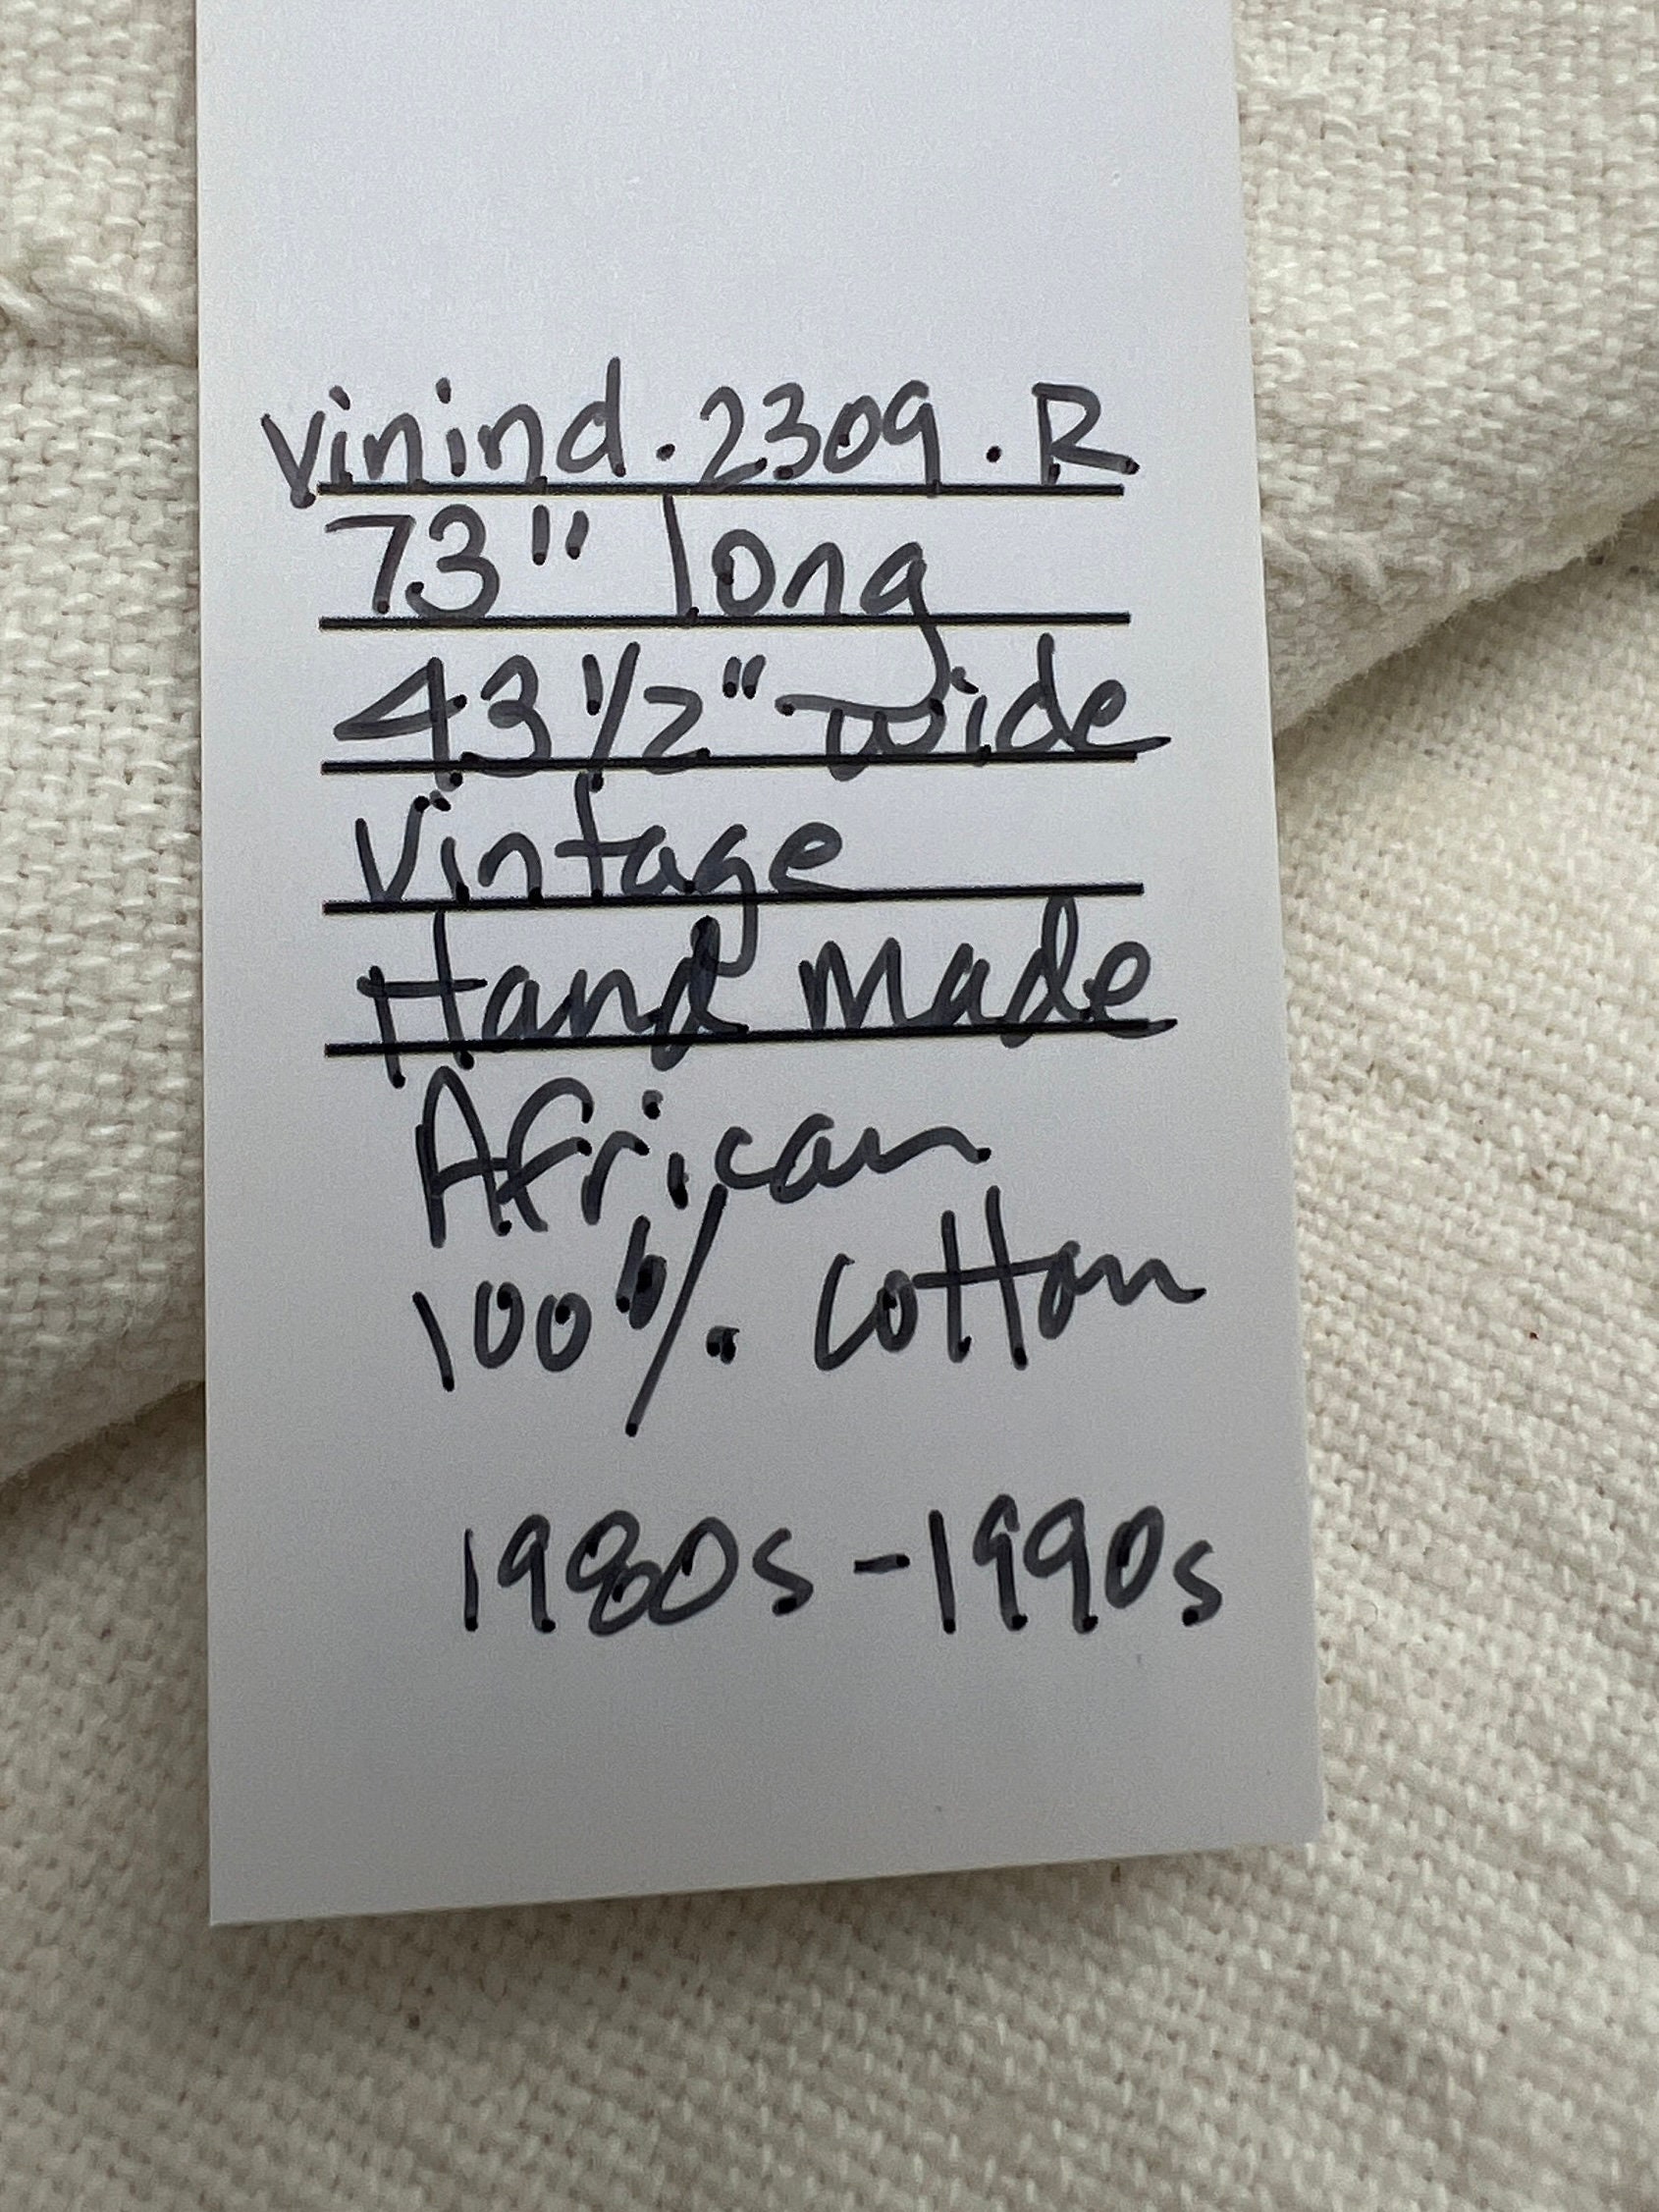 vinind.2309.R
73" long
43 1/2" wide
Vintage
Hand made
African
100% cotton
1980s-1990s